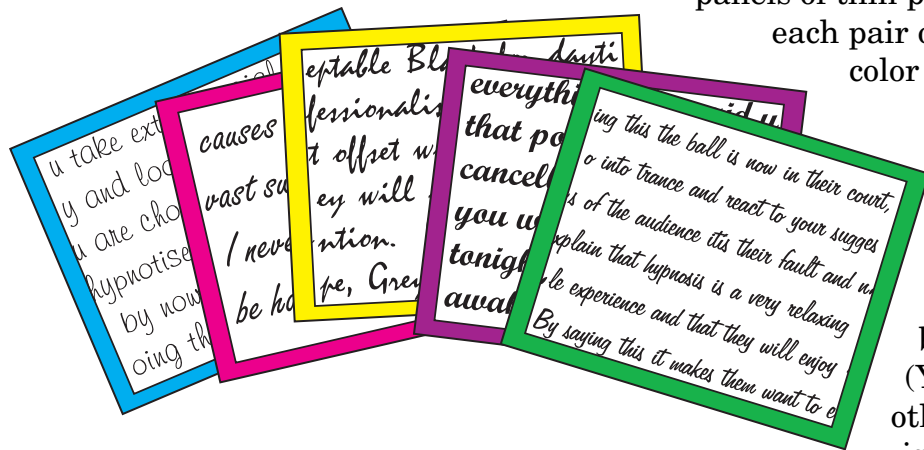 panels of thin p
each pair
color
u take ext
y and loo
u are cho
hypnotise
by now
oing th
causes
vast su
I neve
be ho
eptable Bla dayti
fessionalis
t offset w
ey will
ntion.
pe, Grey
everythi
that po
cancell
you w
tonigh
awa
ing this the ball is now in their court,
o into trance and react to your sugges
s of the audience itis their fault and
xplain that hypnosis is a very relaxing
le experience and that they will enjoy
By saying this it makes them want to e
(Y
oth